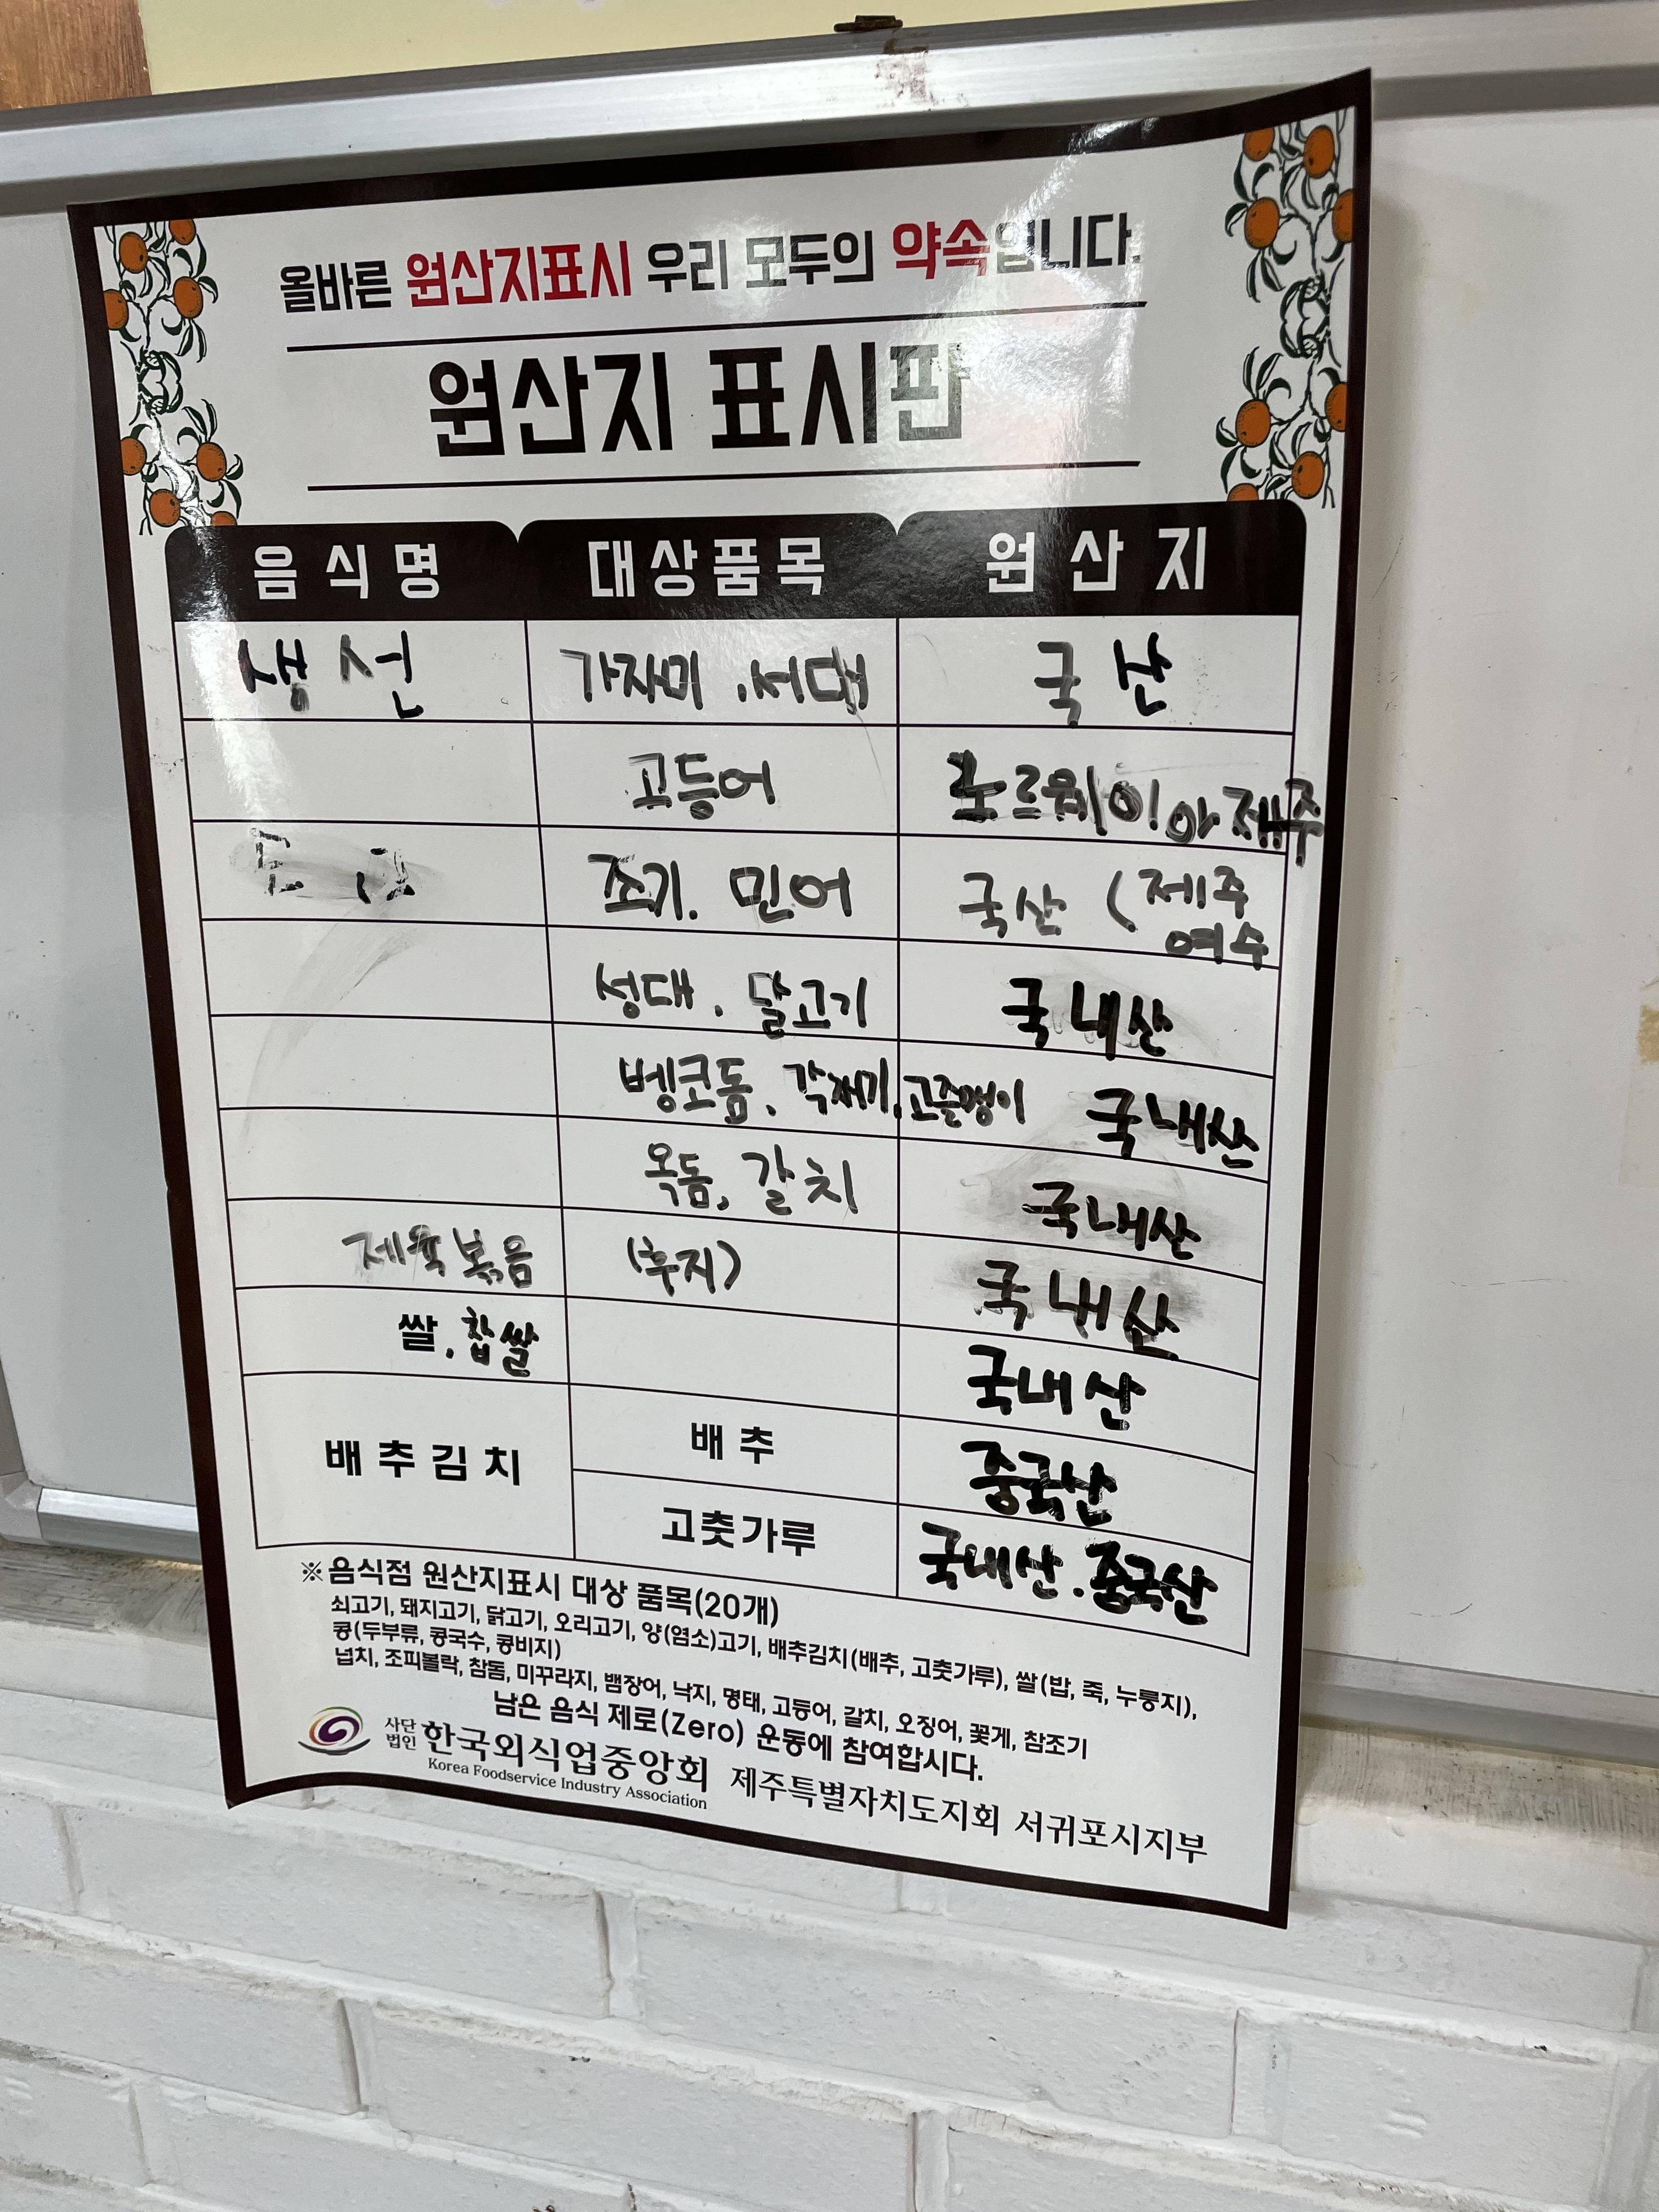 올바른 원산지표시 우리 모두의 약속입니다.
원산지 표시판
음식명 대상품목 원산지
생선 가자미. 서대 국산
고등어 노르웨이 아 제주
조기. 민어 국산 (제주
여수
성대. 달고기 국내산
벵코돔. 각재기. 고즐맹이 국내산
옥돔, 갈치 국내산
제육볶음 (후지) 국내산
쌀. 찹쌀 국내산
배추김치 배추 중국산
고춧가루 국내산. 중국산
※음식점 원산지표시 대상 품목(20개)
쇠고기, 돼지고기, 닭고기, 오리고기, 양(염소)고기, 배추김치(배추, 고춧가루), 쌀(밥, 죽, 누룽지),
콩(두부류, 콩국수, 콩비지)
넙치, 조피볼락, 참돔, 미꾸라지, 뱀장어, 낙지, 명태, 고등어, 갈치, 오징어, 꽃게, 참조기
남은 음식 제로(Zero) 운동에 참여합시다.
사단법인 한국외식업중앙회 제주특별자치도지회 서귀포시지부
Korea Foodservice Industry Association